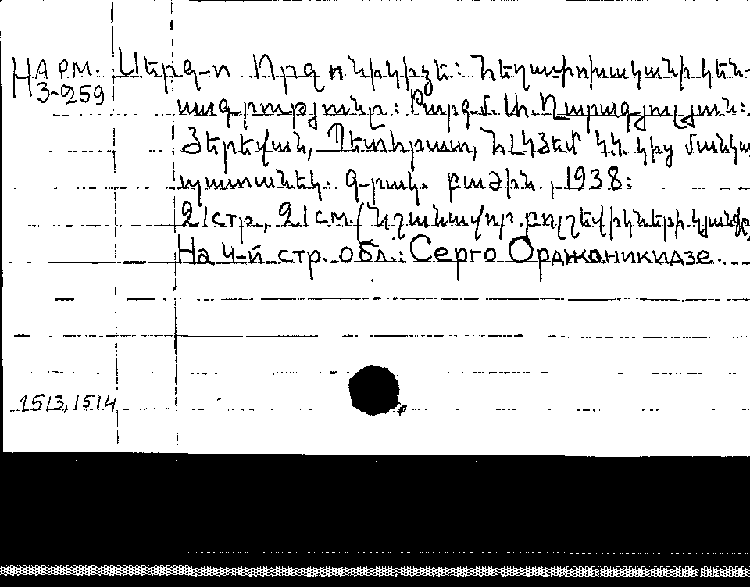 НАРМ. Սերգո Որջոնիկիձե: Հեղափոխականի կեն-
3-259
սագրությունը: Թարգմ.
Յերեվան, Պետհրատ, ՀԼԿՅԵՄ ԿԿ կից մանկա
պատանեկ. գրակ. բաժին, 1938:
21стр., 21см. (Նշանավոր բոլշևիկների կյանքը
На 4-й стр. обл.: Серго Орджоникидзе.
1513, 1514